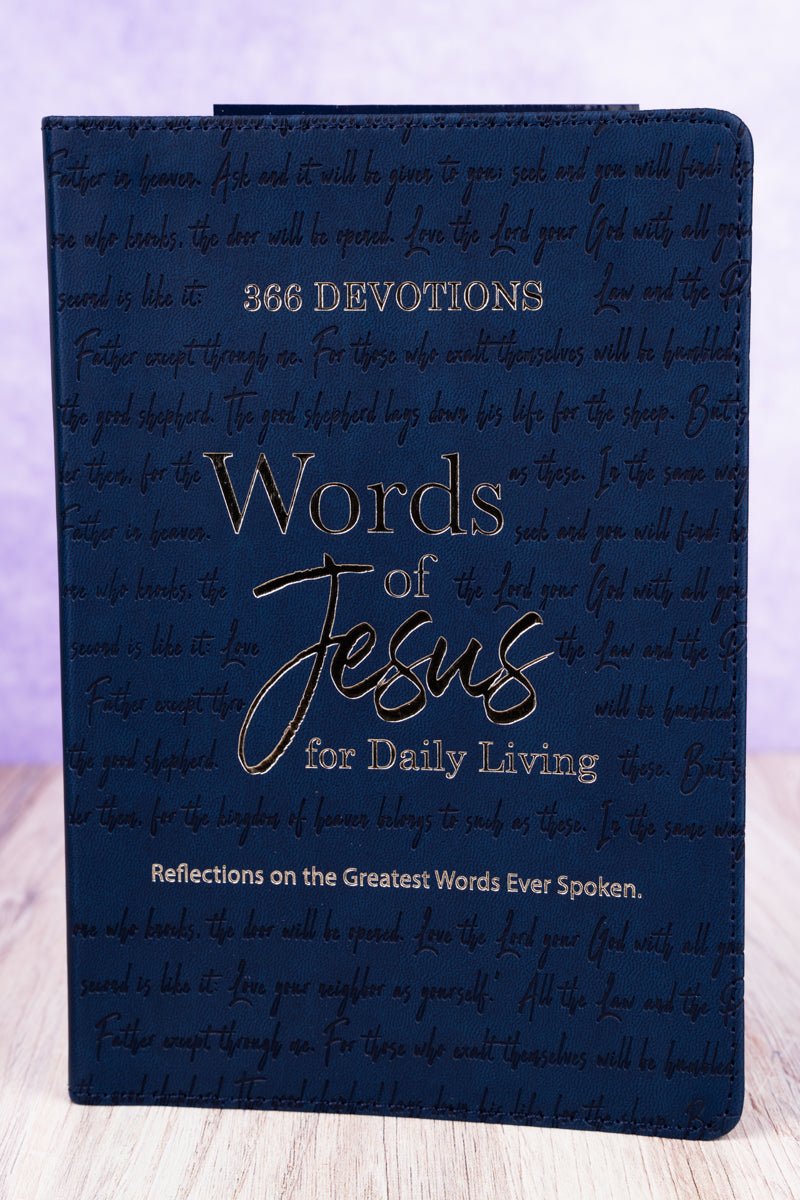 Father in heaven. Ask and it will be given to you; seek and you will find;
one who knocks, the door will be opened. Love the Lord your God with all you
second is like it: Law and the P
366 DEVOTIONS
Father except through me. For those who exalt themselves will be humbled,
the good shepherd. The good shepherd lays down his life for the sheep. But
der them, for the as these. In the same way
Words
Father in heaven. seek and you will find;
of
one who knocks, the the Lord your God with all you
Jesus
second is like it: Love the Law and the P
Father except thro will be humbled,
for Daily Living
the good shepherd. these. But
der them, for the kingdom of heaven belongs to such as these. In the same way
Reflections on the Greatest Words Ever Spoken.
one who knocks, the door will be opened. Love the Lord your God with all you
second is like it: 'Love your neighbor as yourself.' All the Law and the P
Father except through me. For those who exalt themselves will be humbled
the good shepherd. The good shepherd lays down his life for the sheep. B